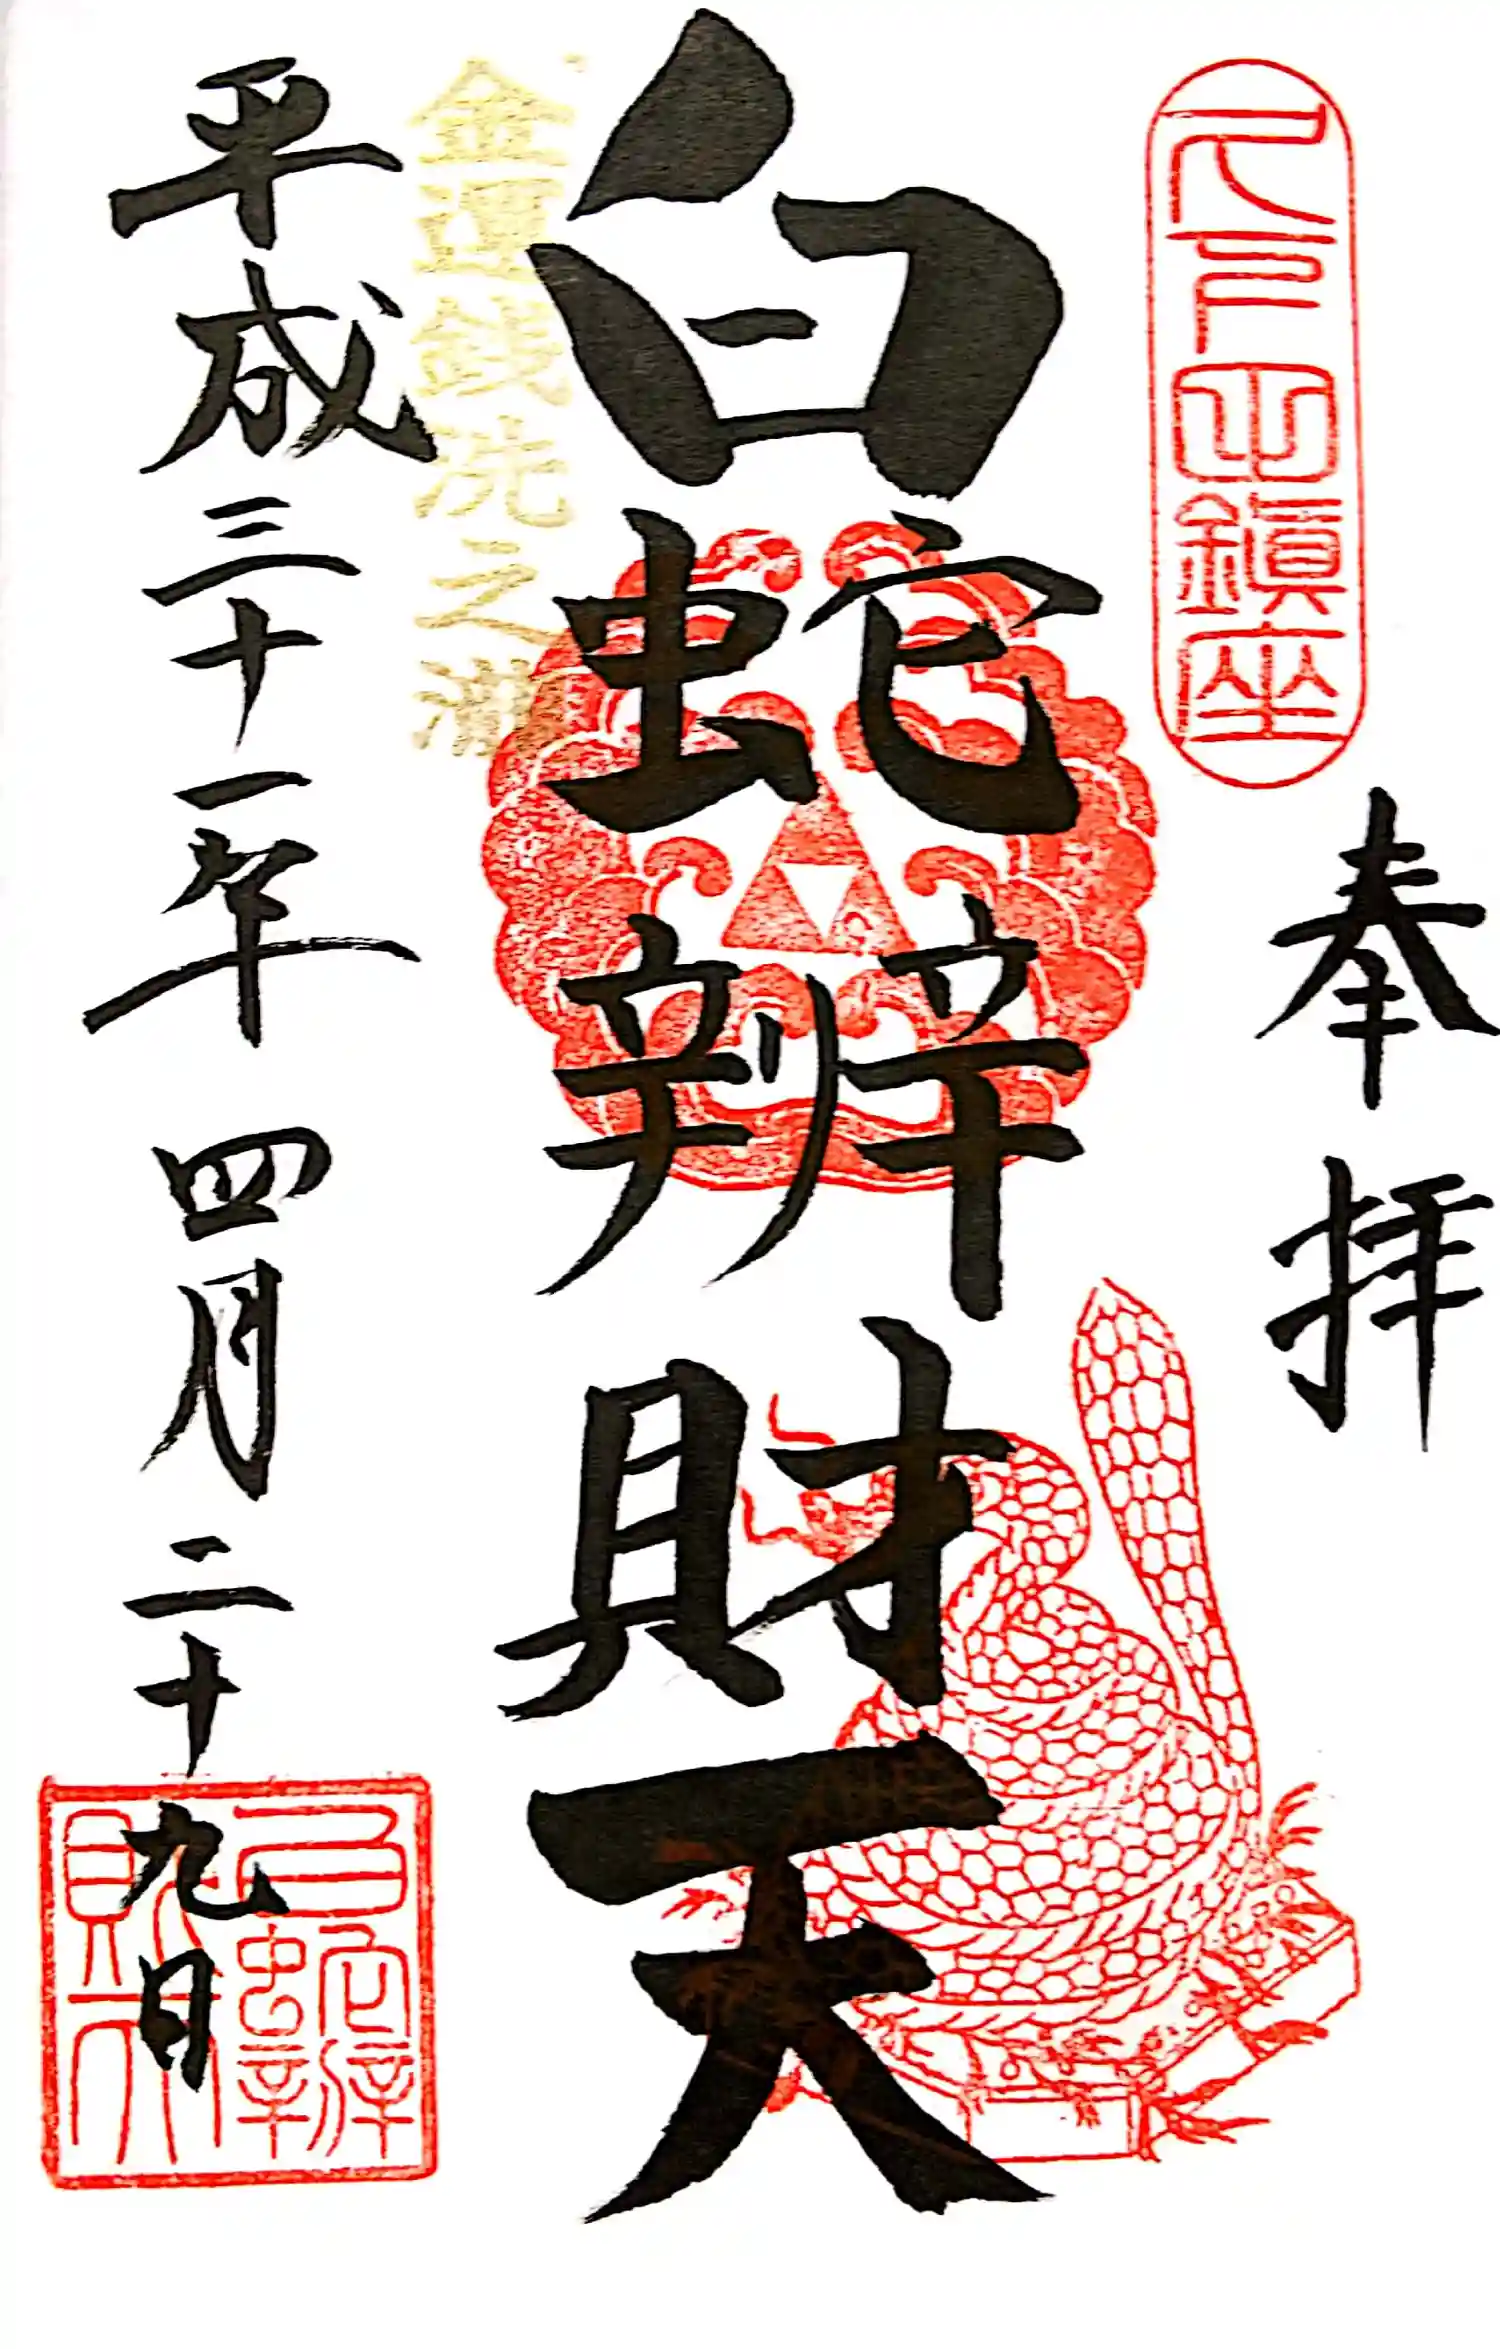 久戸山鎮座
奉拝
白蛇辨財天
金運銭洗之滝
平成三十一年四月二十九日
白蛇辨財天